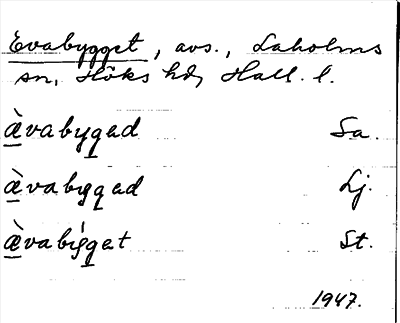 Evabygget, avs., Laholms
sn, Höks hd, Hall. l.
æ̀vabygad Sa.
æ̀vabygad Lj.
æ̀vabýgat St.
1947.